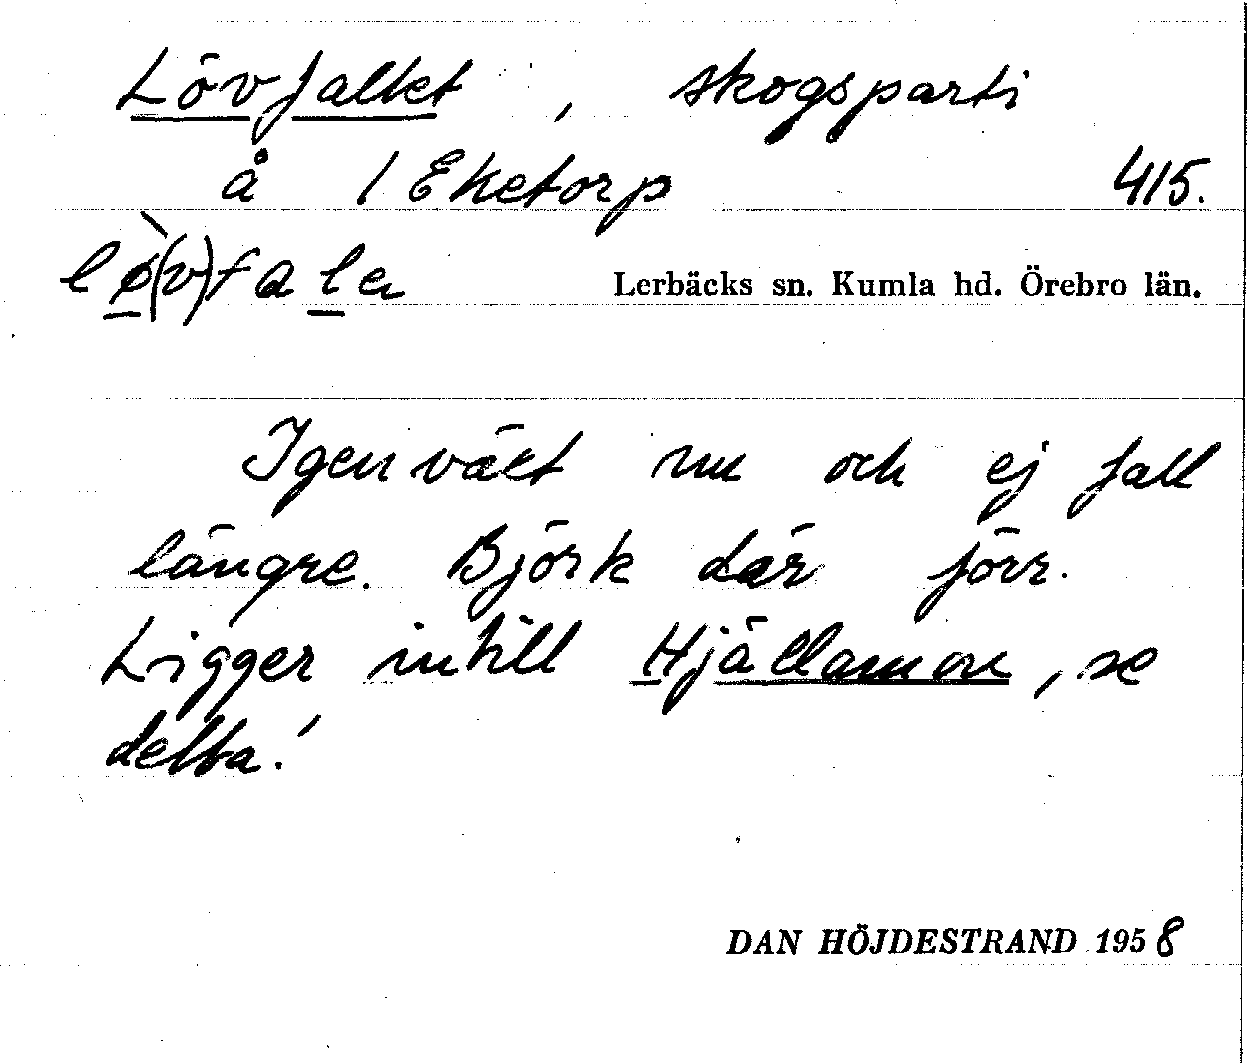 Lövfallet, skogsparti
å 1 Eketorp 415.
lø̀(v)falen Lerbäcks sn. Kumla hd. Örebro län.
Igenväxt nu och ej fall
längre. Björk där förr.
Ligger intill Hjällamon, se
detta!
DAN HÖJDESTRAND 1958